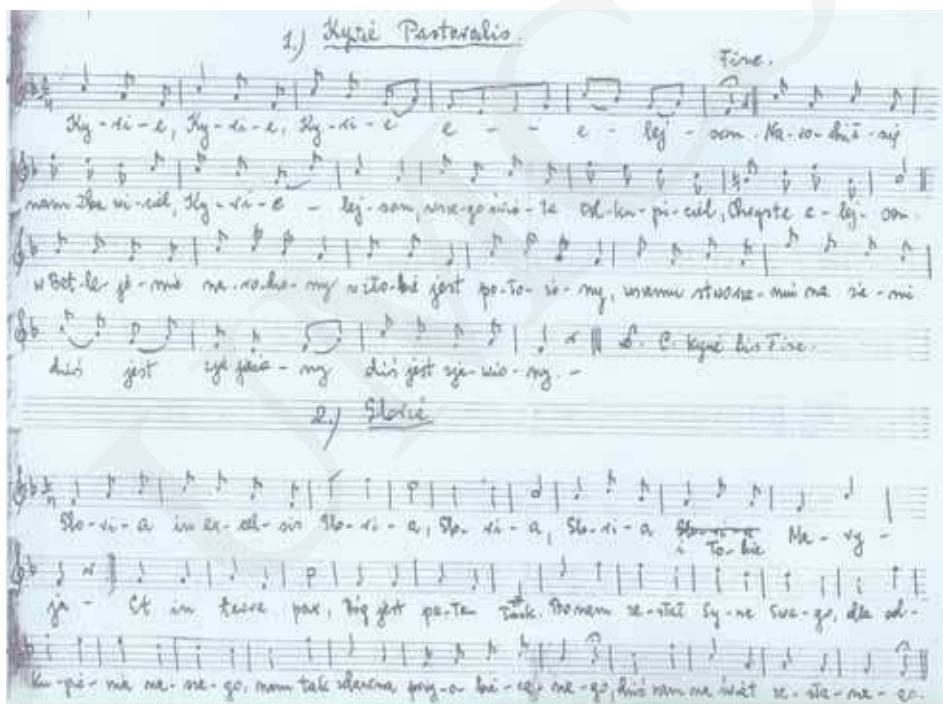 1.) Kyrie Pastoralis.
Fine.
Ky - ri - e, Ky - ri - e, Ky - ri - e e - - e - lej - son. Na - ro - dził - się
nam Zba wi - ciel, Ky - ri - e - lej - son, wsze - go świa - ta Od - ku - pi - ciel, Chryste e - lej - son.
w Bet - le - je - mie na - ro - dzo - ny w żło - bie jest po - ło - żo - ny, wsemu stworze - niu na zie - mi
dziś jest - ny dziś jest zja - wio - ny. - D. C. Kyrie bis Fine.
2.) Gloria
Glo - ri - a in ex - cel - sis Glo - ri - a, Glo - ri - a, Glo - ri - a i To - bie Ma - ry -
ja - Et in terra pax, Bóg jest pe - łen łask. Bo nam ze - słał Sy - na Swe - go, dla od -
ku - pie - nia na - sze - go, nam tak zdawna - ne - go, dziś nam na świat ze - sła - ne - go.
UMCS